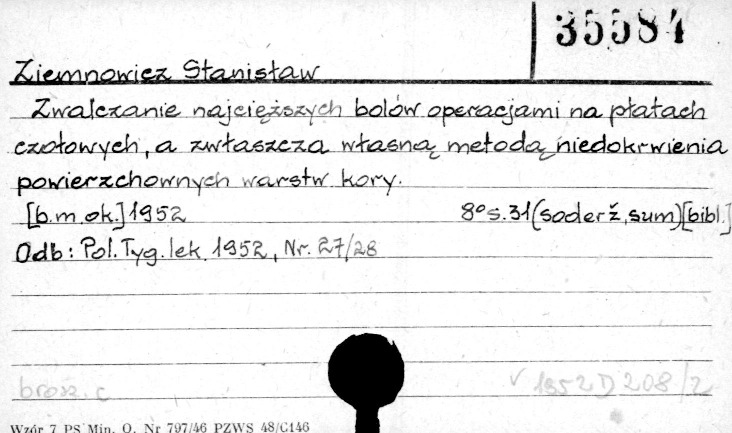 35584
Ziemnowicz Stanisław
Zwalczanie najcięższych bolów operacjami na płatach
czołowych, a zwłaszcza własną metodą niedokrwienia
powierzchownych warstw kory.
[b.m.ok.] 1952 8° s. 31 (soderž, sum) [bibl.]
Odb: Pol. Tyg. lek. 1952, Nr. 27/28
brosz. c √ 1952 D 208/2
Wzór 7 PS Min. O. Nr 797/46 PZWS 48/G146